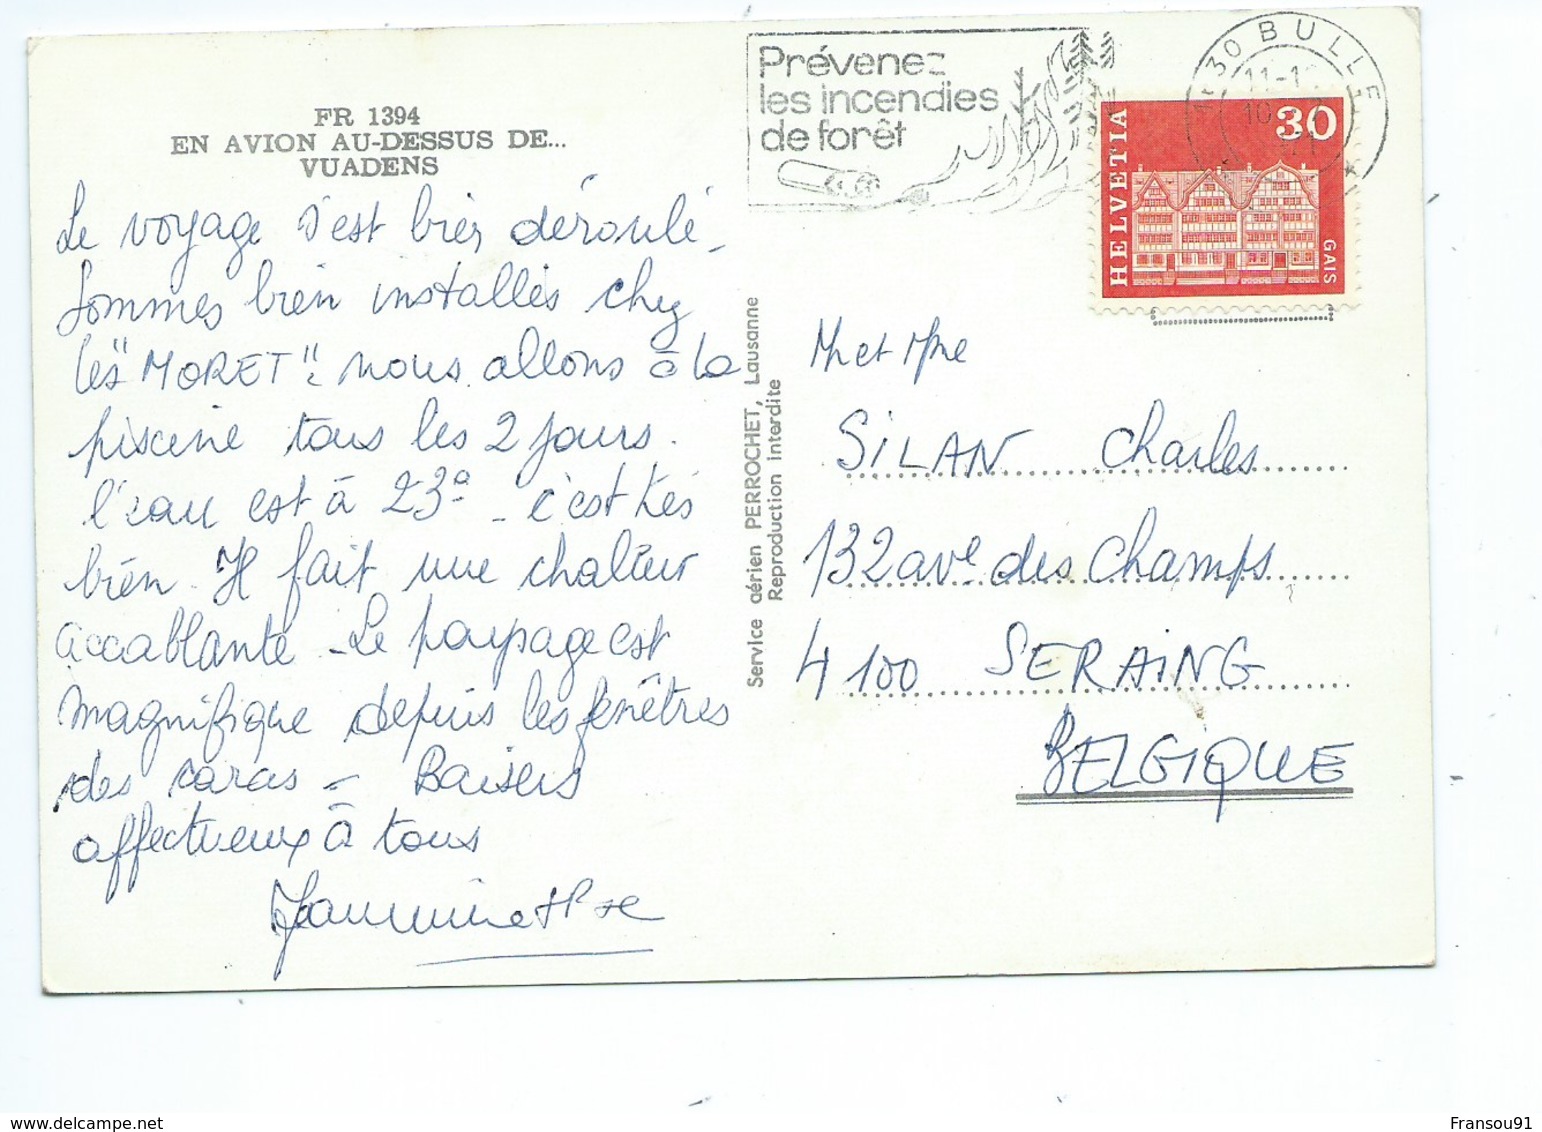 FR 1394
EN AVION AU-DESSUS DE...
VUADENS
Le voyage s'est bien déroulé -
Sommes bien installés chez
les "MORET". nous allons à la
piscine tous les 2 jours.
l'eau est à 23° - c'est très
bien. Il fait une chaleur
accablante - Le paysage est
magnifique depuis les fenêtres
des caras - Baisers
affectueux à tous
Prévenez
les incendies
de forêt
1630 BULLE
11-1
10
HELVETIA
30
GAIS
Service aérien PERROCHET, Lausanne
Reproduction interdite
Mr et Mme
SILAN Charles
132 ave des Champs
4100 SERAING
BELGIQUE
Fransou91